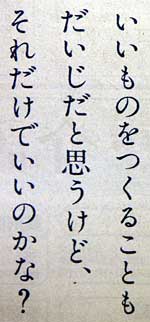 いいものをつくることも
だいじだと思うけど、
それだけでいいのかな？